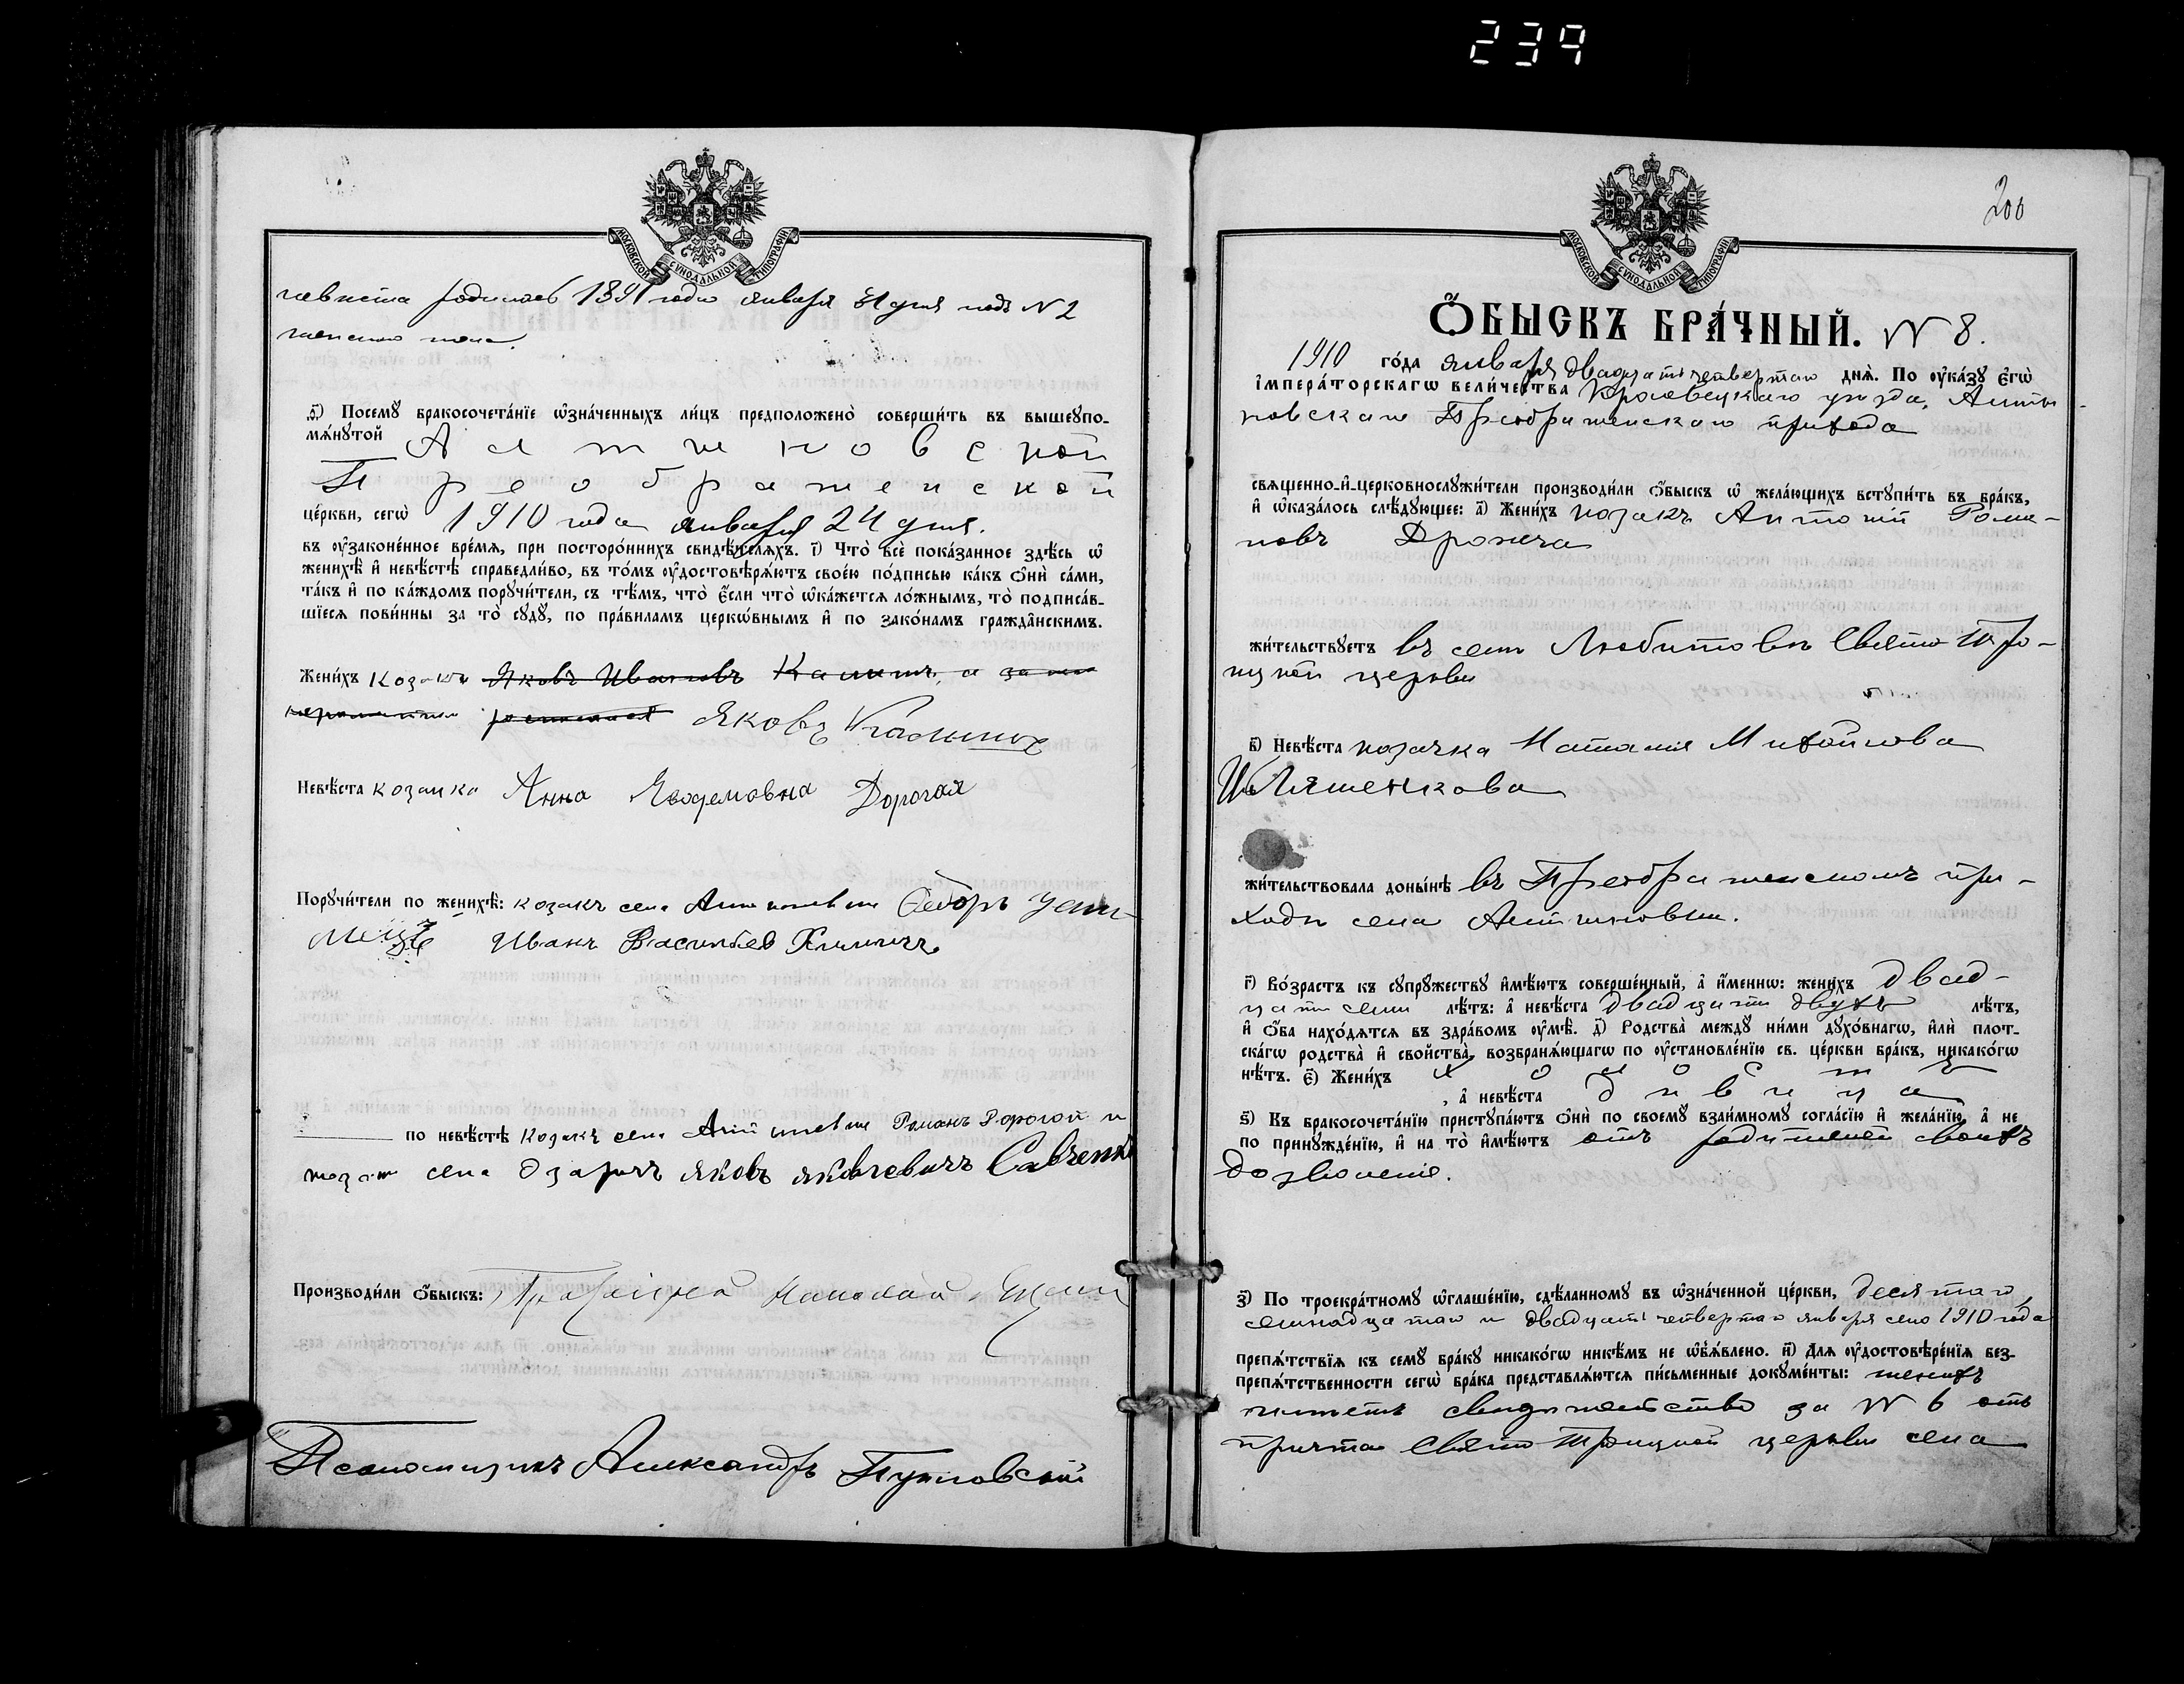 239
МОСКОВСКОЙ СѴНОДАЛЬНОЙ ТИПОГРАФІИ
невѣста родилась 1891 года января 31 дня подъ N 2
женскаго пола.
ѳ҃) Посемꙋ бракосочета́нїе ѡ҆зна́ченныхъ ли́цъ предположено̀ соверши́ть въ вышеꙋпо-
мѧ́нꙋтой Алтиновской
Преображенской
це́ркви, сегѡ̀ 1910 года января 24 дня.
въ ѹ҆законе́нное вре́мѧ, при посторо́ннихъ свидѣ́телѧхъ. і҃) Что̀ всѐ пока́занное здѣ́сь ѡ҆
женихѣ̀ и҆ невѣ́стѣ справедли́во, въ то́мъ ѹ҆достовѣрѧ́ютъ свое́ю по́дписью ка́къ ѻ҆нѝ са́ми,
та́къ и҆ по ка́ждомъ порꙋчи́тели, съ тѣ́мъ, что̀ є҆́сли что̀ ѡ҆ка́жетсѧ ло́жнымъ, то̀ подписа́в-
шїесѧ пови́нны за то̀ сꙋдꙋ̀, по пра́виламъ церкѡ́внымъ и҆ по зако́намъ гражда̑нскимъ.
Жени́хъ козакъ Яковъ Ивановъ Калинъ, а за него
неграмотнаго росписался Яковъ Калиних
Невѣ́ста козачка Анна Явдемовна Дорогая
Порꙋчи́тели по женихѣ̀: козакъ села Алтиновки Ѳедоръ
Иванъ Васильев
по невѣ́стѣ козакъ села Алтиновки Романъ Дорогой и
козакъ села Озаричъ Яковъ Яковлевичъ Савченко
Производи́ли ѻ҆́быскъ: Николай
Псаломщикъ Александръ
200
МОСКОВСКОЙ СѴНОДАЛЬНОЙ ТИПОГРАФІИ
Ѻ҆́БЫСКЪ БРА́ЧНЫЙ. N 8.
1910 го́да января двадцать четвертаго днѧ̀. По ѹ҆ка́зꙋ є҆гѡ̀
і҆мпера́торскагѡ вели́чества Кролевецкаго уѣзда, Алти-
новскаго Преображенскаго прихода
свѧщенно-и҆-церковнослꙋжи́тели производи́ли ѻ҆́быскъ ѡ҆ жела́ющихъ встꙋпи́ть въ бра́къ,
и҆ ѡ҆каза́лось слѣ́дꙋющее: а҃) Жени́хъ козакъ Антоній Рома-
новъ
жи́тельствꙋетъ въ селѣ Любитовѣ Свято Тро-
ицкой церкви
в҃) Невѣ́ста козачка Наталія Михайлова
Ильяшенкова
жи́тельствовала донн҄ѣ въ Преображенскомъ при-
ходѣ села Алтиновки.
г҃) Во́зрастъ къ сꙋпрꙋ́жествꙋ и҆мѣ́ютъ соверше́нный, а҆ и҆́меннѡ: жени́хъ двад-
цати семи лѣ́тъ: а҆ невѣ́ста двадцати двухъ лѣ́тъ,
и҆ ѻ҆́ба нахо́дѧтсѧ въ здра́вомъ ѹ҆мѣ̀. д҃) Родства̀ междꙋ̀ ни́ми дꙋхо́внагѡ, и҆лѝ плот-
ска́гѡ родства̀ и҆ свойства̀, возбранѧ́ющагѡ по ѹ҆становле́нїю св. це́ркви бра́къ, никако́гѡ
нѣ́тъ. є҃) Жени́хъ холостъ
, а҆ невѣ́ста дѣвица
ѕ҃) Къ бракосочета́нїю пристꙋпа́ютъ ѻ҆нѝ по своемꙋ̀ взаи́мномꙋ согла́сїю и҆ жела́нїю, а҆ не
по принꙋжде́нїю, и҆ на то̀ и҆мѣ́ютъ отъ родителей своихъ
дозволенія.
з҃) По троекра́тномꙋ ѡ҆глаше́нїю, сдѣ́ланномꙋ въ ѡ҆зна́ченной це́ркви, десятаго,
семнадцатаго и двадцать четвертаго января сего 1910 года
препѧ́тствїѧ къ семꙋ̀ бра́кꙋ никако́гѡ никѣ́мъ не ѡ҆б̾ѧ́влено. и҃) Длѧ ѹ҆достовѣре́нїѧ без-
препѧ́тственности сегѡ̀ бра́ка представлѧ́ютсѧ пи́сьменные докꙋме́нты: женихъ
имѣетъ свидѣтельство за N 6 отъ
причта Свято Троицкой церкви села